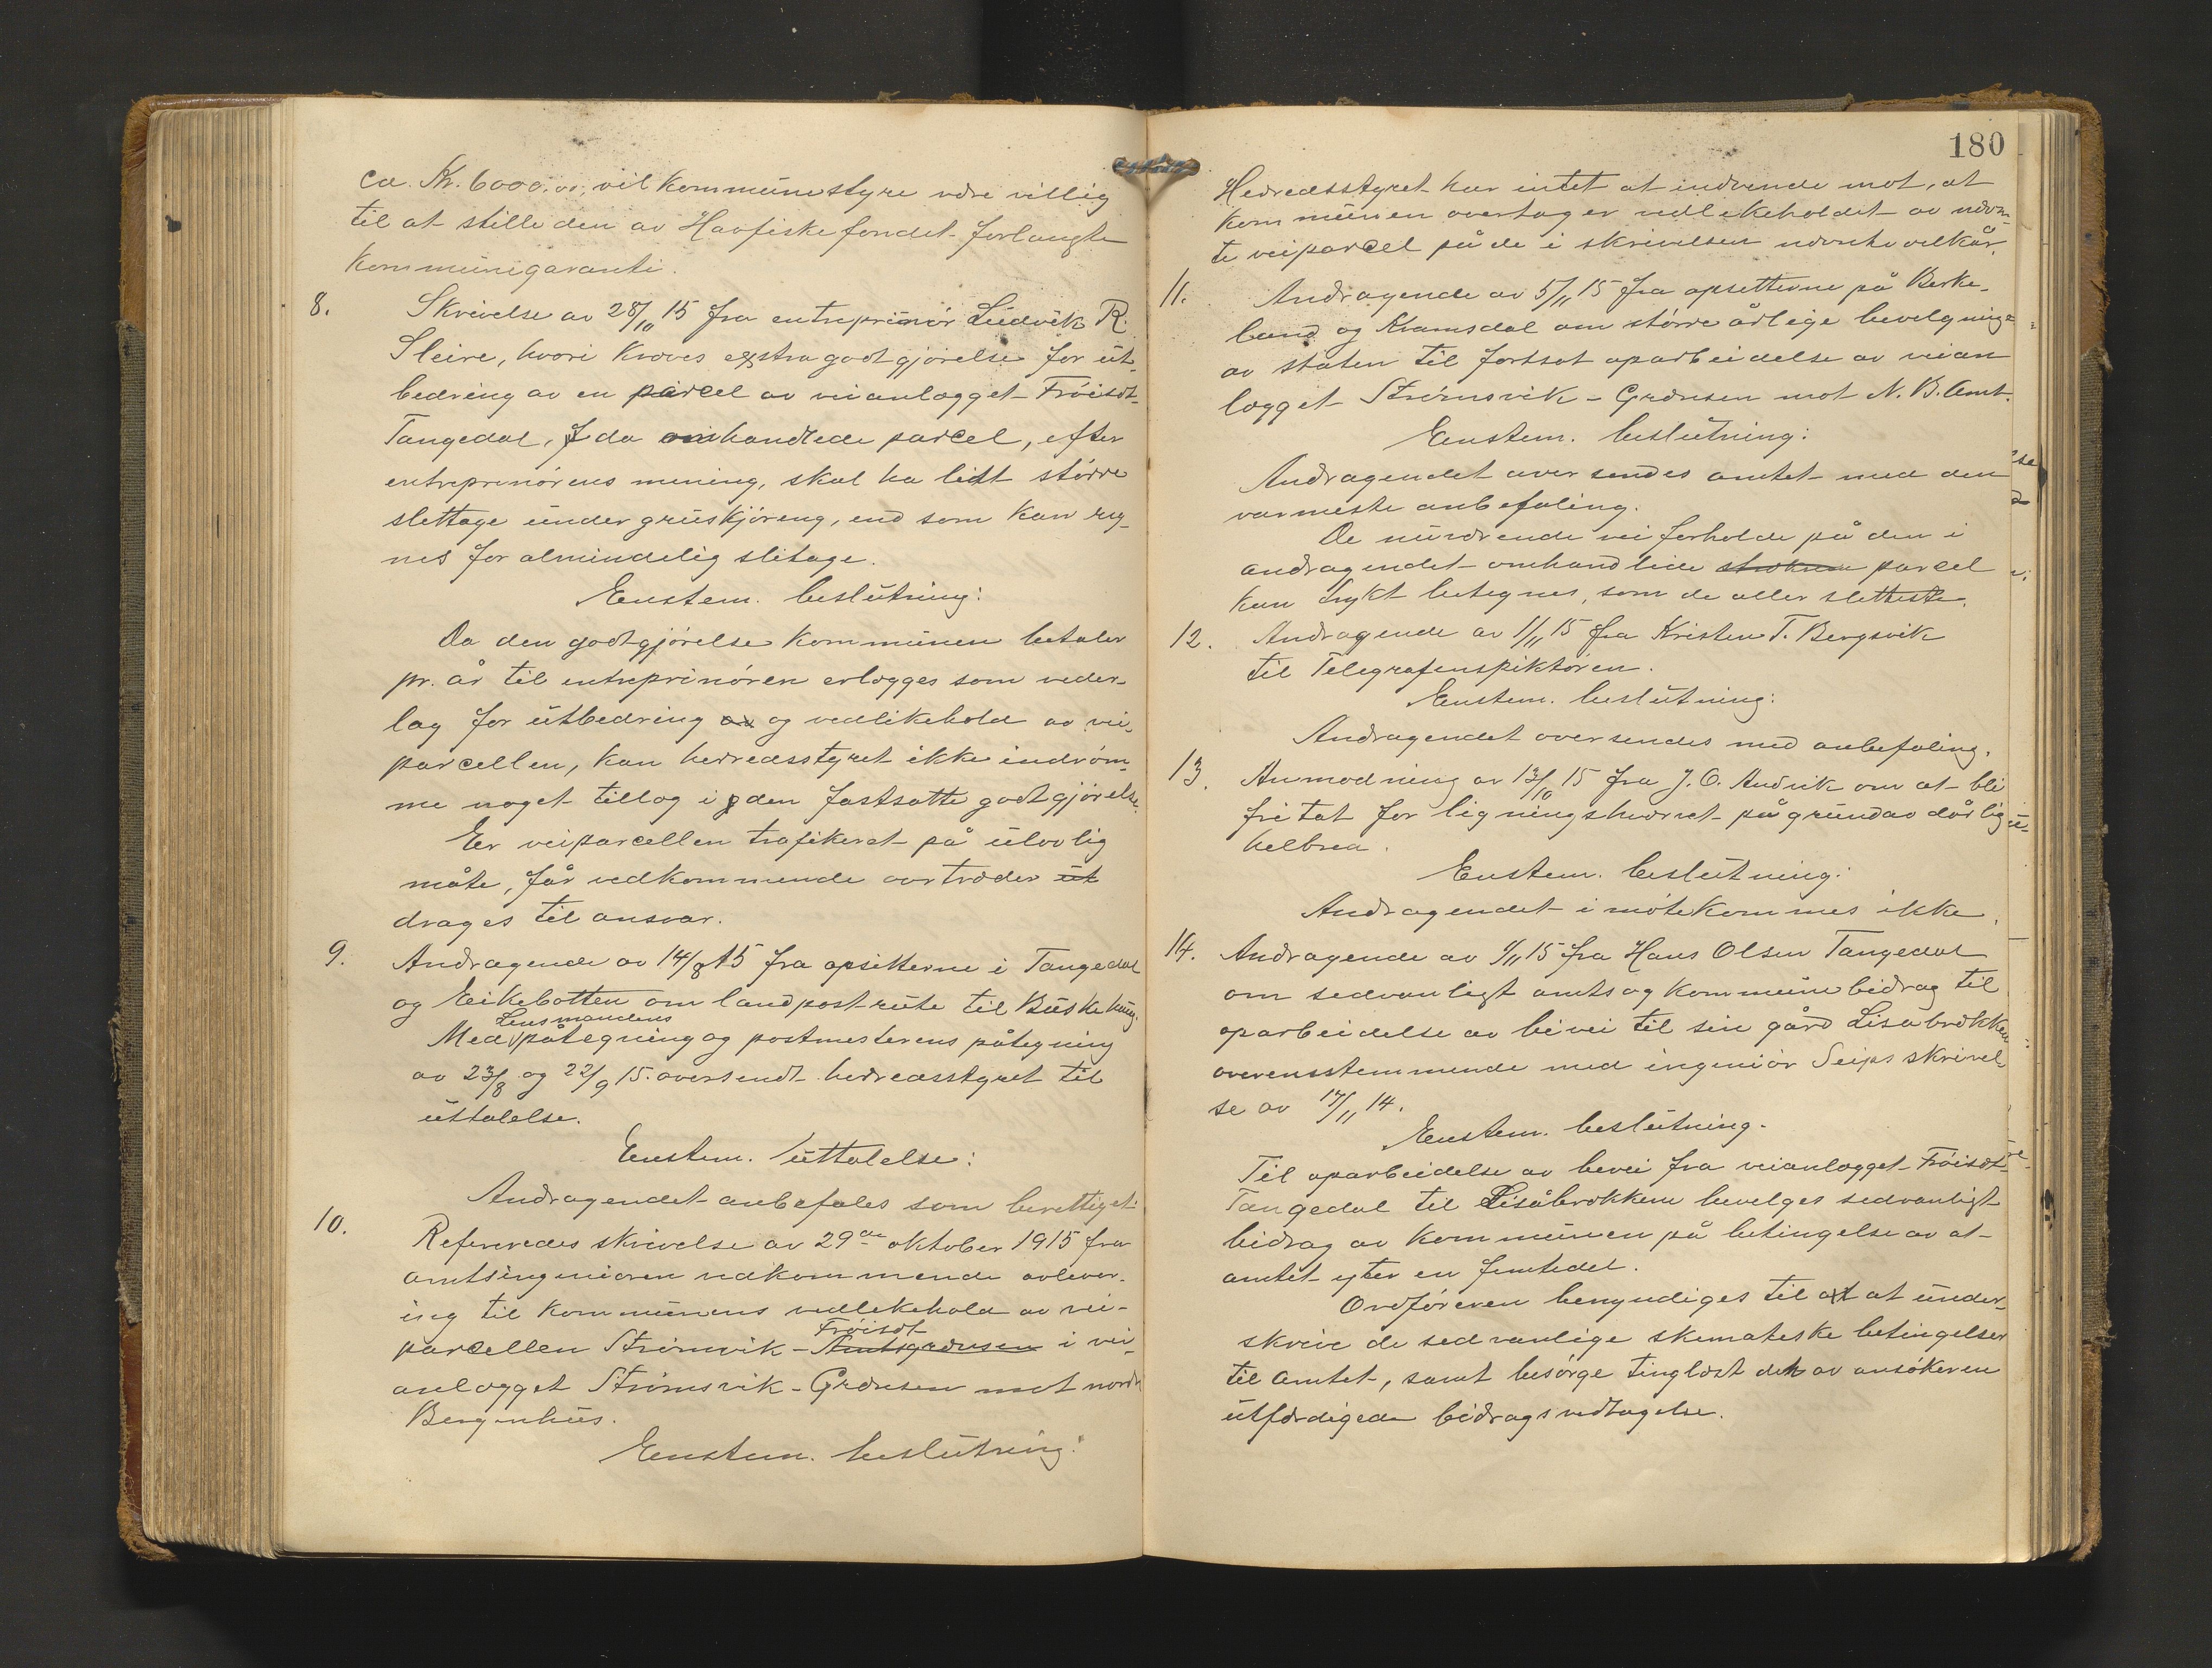 ca. Kr. 6000,00, vil kommunestyre være villig
til at stille den av Havfiskefondet forlangte
kommunegaranti.
8. Skrivelse av 28/10 15 fra entreprenör Ludvik R.
Sleire, hvori kræves exstra godtgjörelse for ut-
bedring av en parcel av veianlægget Fröiset-
Tangedal, da omhandlede parcel, efter
entreprenörens mening, skal ha lidt större
slettage under gruskjöreng, end som kan reg-
nes for almindelig slitage.
Enstem. beslutning:
Da den godtgjörelse kommunen betaler
pr. år til entreprenören erlægges som veder-
lag for utbedring av og vedlikehold av vei-
parcellen, kan herredsstyret ikke indröm-
me noget tillæg i den fastsatte godtgjörelse.
Er veiparcellen trafikeret på ulovlig
måte, får vedkommende overtræder ut
drages til ansvar.
9. Andragende av 14/8 15 fra opsitterne i Tangedal
og Eikebotten om landpostrute til Buskehaug.
Lensmandens
Med påtegning og postmesterens påtegning
av 23/8 og 22/9 15. oversendt herredsstyret til
uttalelse.
Enstem. uttalelse:
Andragendet anbefales som berettiget.
10. Refereredes skrivelse av 29de oktober 1915 fra
amtsingeniören vedkommende avlever-
ing til kommunens vedlekehold av vei-
Fröiset
parcellen Strömsvik - Amtsgrænsen i vei-
anlægget Strömsvik - Grænsen mot nordre
Bergenhus.
Enstem. beslutning:
180
Herredsstyret har intet at indvende mot, at
kommunen overtager vedlekeholdet av nævn-
te veiparcel på de i skrivelsen nævnte vilkår.
11. Andragende av 5/11 15 fra opsetterne på Berke-
land og Kvamsdal om större årlige bevelgninger
av staten til fortsat oparbeidelse av veian
lægget Strömsvik - Grænsen mot N. B. Amt.
Enstem. beslutning:
Andragendet oversendes amtet med den
varmeste anbefaling.
De nuværende veiforholde på den i
andragendet omhandlede parcel
kan trykt betegnes, som de aller sletteste.
12. Andragende av 1/11 15 fra Kristen T. Bergsvik
til Telegrafenspiktören.
Enstem. beslutning:
Andragendet oversendes med anbefaling.
13. Anmodning av 13/10 15 fra J. O. Andvik om at bli
fritat for ligningshvervet på grund av dårlig
helbred.
Enstem. beslutning:
Andragendet imötekommes ikke.
14. Andragende av 1/11 15 fra Hans Olsen Tangedal
om sedvanligt amts og kommunebidrag til
oparbeidelse av bivei til sin gård Lisabrekken
overensstemmende med ingeniör Seips skrivel
se av 17/11 14.
Enstem. beslutning.
Til oparbeidelse av bevei fra veianlægget Fröiset-
Tangedal til Lisåbrekken bevelges sedvanligt
bidrag av kommunen på betingelse av at
amtet yter en femtedel.
Ordföreren benyndiges til at at under-
skrive de sedvanlige skematiske betingelser
til amtet, samt besörge tinglæst den av ansökeren
utfærdigede bidragsvedtagelse.